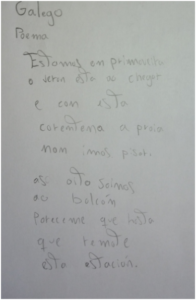 Galego
Poema
Estamos en primavera
o verán está ao chegar
e con esta
corentena a praia
non imos pisar.
as oito saímos
ao balcón
Pareceme que hasta
que remate
esta estación.